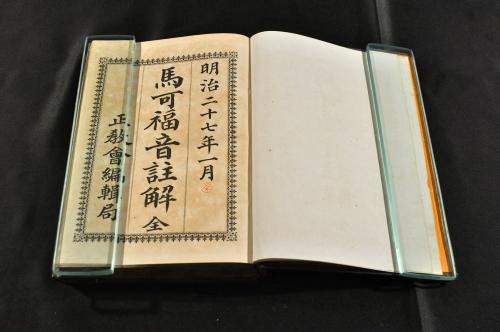 明治二十七年一月
馬可福音註解 全
正教會編輯局